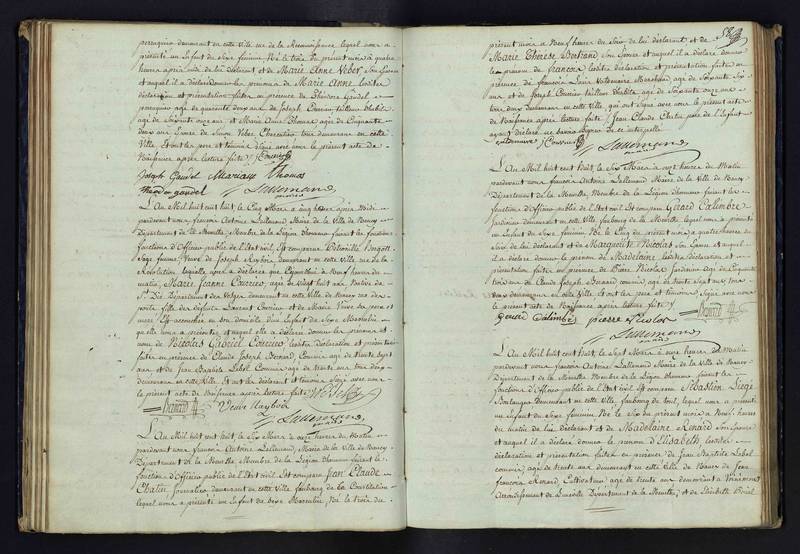 perruquier demeurant en cette ville rue de la Reconnoissance lequel nous a
présenté un Enfant du Sexe féminin Né le trois du présent mois à quatre
heures après midi de lui déclarant et de Marie Anne Veber Son Epouse
et auquel il a déclaré donner les prénoms de Marie Anne lesdites
déclaration et présentation faites en présence de Théodore Gaudel
perruquier agé de quarante deux ans de Joseph Courrier tailleur
agé de Soixante onze ans et Marie Anne Thomas agée de Cinquante
deux ans Epouse de Simon Veber Charcutier tous demeurant en cette
Ville et ont les pere et témoins Signé avec nous le présent acte de
Naissance après lecture faite
Joseph Gaudel Mariane Thomas
Lallemand
maire
L'An Mil huit cent huit, le Cinq Mars à heures après Midi
pardevant nous françois Antoine Lallemand Maire de la Ville de Nancy
Département de la Meurthe Membre de la Légion d'honneur faisant les
fonctions d'Officier public de l'état civil, Est comparue
Sage femme, Veuve de Joseph Naybois demeurant en cette Ville rue de la
Révolution laquelle nous a déclaré que Cejourd'hui à Neuf heures du
matin, Marie Jeanne Courrier, agée de Vingt huit ans, Native de
St. Dié, Département des Vosges demeurant en cette Ville de Nancy
fille des défunts Laurent Courrier et de Marie
Est accouchée en Son domicile d'un Enfant du Sexe Masculin
qu'elle nous a présenté et auquel elle a déclaré donner les prénoms et
nom de Nicolas Gabriel Courrier lesdites déclaration et présentation
faites en présence de Claude Joseph Bernard, Commis agé de trente Sept
ans et de Jean Baptiste Label Commis agé de trente ans tous deux
demeurant en cette Ville, Et ont les déclarant et témoins Signé avec nous
le présent acte de Naissance après lecture faite
Bernard Veuve Naybois
Lallemand
maire
L'An Mil huit cent huit, le Six Mars à onze heures du Matin
pardevant nous françois Antoine Lallemand Maire de la Ville de Nancy
Département de la Meurthe Membre de la Légion d'honneur faisant les
fonctions d'Officier public de l'état civil Est comparu Jean Claude
Chatin, Journalier demeurant en cette Ville faubourg de la Constitution
lequel nous a présenté un Enfant du Sexe Masculin, Né le trois du
présent mois à Neuf heures du Soir de lui déclarant et de
Marie Thérèse Bertrand Son Epouse et auquel il a déclaré donner
le prénom de François lesdites déclaration et présentation faites en
présence de françois Louis agé de Soixante
ans et de Joseph Courrier tailleur agé de Soixante onze ans
tous deux demeurant en cette Ville, qui ont Signé avec nous le présent acte
de Naissance après lecture faite, Jean Claude Chatin pere de l'Enfant
ayant déclaré ne Savoir Signer de ce interpellé
Lallemand
maire
L'An Mil huit cent huit, le Six Mars à onze heures du Matin
pardevant nous françois Antoine Lallemand Maire de la Ville de Nancy
Département de la Meurthe Membre de la Légion d'honneur faisant les
fonctions d'Officier public de l'état civil Est comparu Gérard Calimbre
Jardinier demeurant en cette Ville, faubourg de la Meurthe lequel nous a présenté
un Enfant du Sexe féminin Né le Cinq du présent mois à quatre heures du
Soir de lui déclarant et de Marguerite Nicolas Son Epouse et auquel
il a déclaré donner le prénom de Madelaine lesdites déclaration et
présentation faites en présence de Pierre Nicolas Jardinier agé de Cinquante
trois ans de Claude Joseph Bernard commis agé de trente Sept ans tous
deux demeurant en cette Ville, et ont les pere et témoins Signé avec nous
le présent acte de Naissance après lecture faite
gerard Calimbre pierre Nicolas Bernard
Lallemand
maire
L'An Mil huit cent huit, le Sept Mars à onze heures du Matin
pardevant nous françois Antoine Lallemand Maire de la Ville de Nancy
Département de la Meurthe Membre de la Légion d'honneur faisant les
fonctions d'Officier public de l'état civil Est comparu Sébastien Liegé
Boulanger demeurant en cette Ville, faubourg de toul, lequel nous a présenté
un Enfant du Sexe féminin Né le Six du présent mois à Neuf heures
du matin de lui déclarant et de Madelaine Renard Son Epouse
et auquel il a déclaré donner le prénom d'Elisabeth lesdites
déclaration et présentation faites en présence de Jean Baptiste Label
commis agé de trente ans demeurant en cette Ville de Nancy de Jean
françois Renard, Cultivateur agé de trente ans demeurant à
Arrondissement de Lunéville Département de la Meurthe, et de Elisabeth